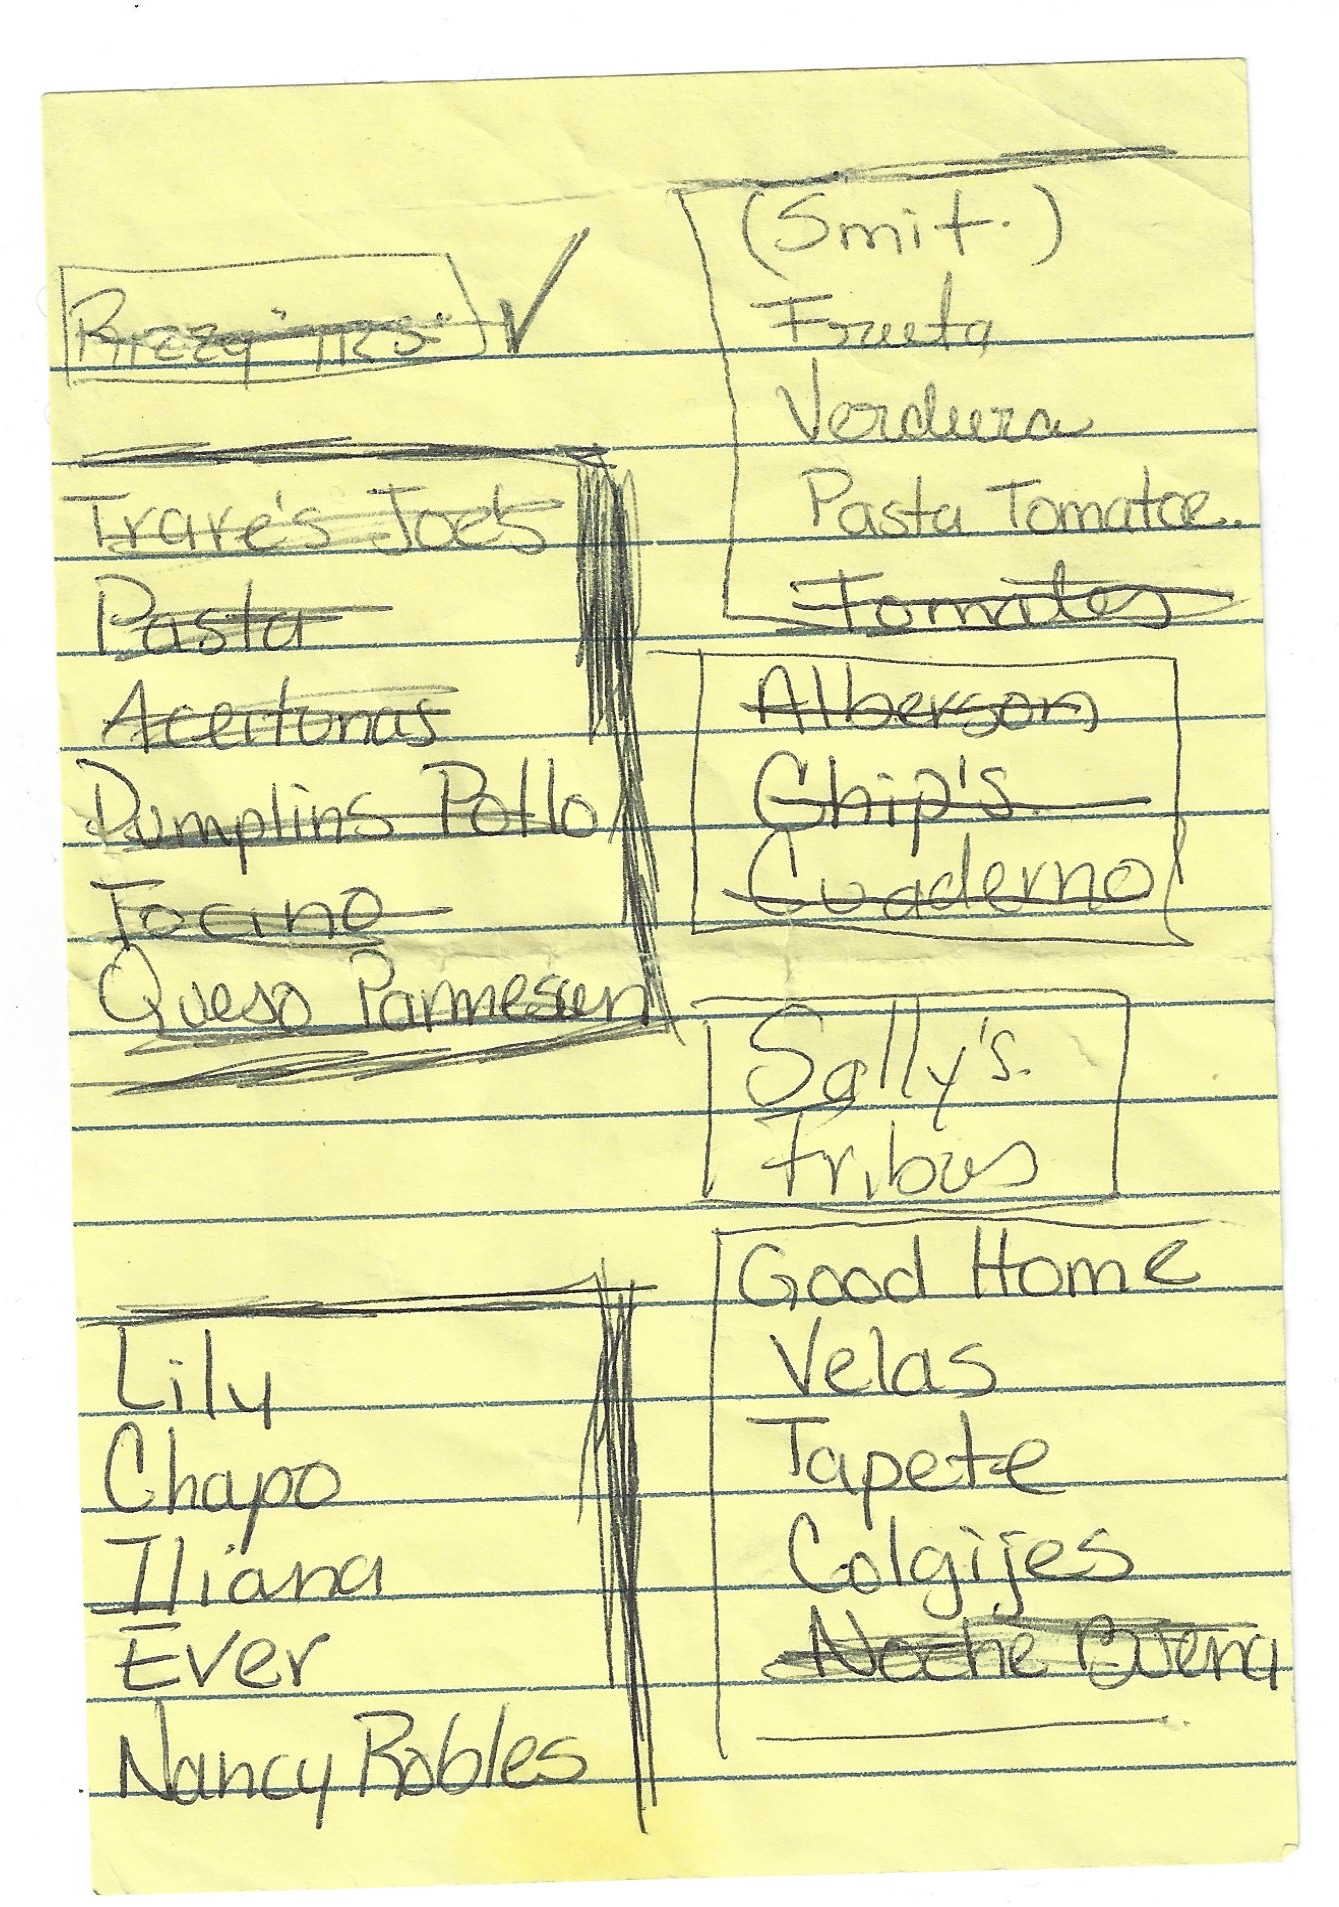 Trare's Joe's
Pasta
Aceitunas
Dumplins Pollo
Tocino
Queso Parmesen
Lily
Chapo
Iliana
Ever
Nancy Robles
(Smit.)
Frueta
Verdura
Pasta Tomatoe.
Tomates
Alberson
Chip's.
Cuaderno
Sally's.
Tribus
Good Home
Velas
Tapete
Colgijes
Noche Buena